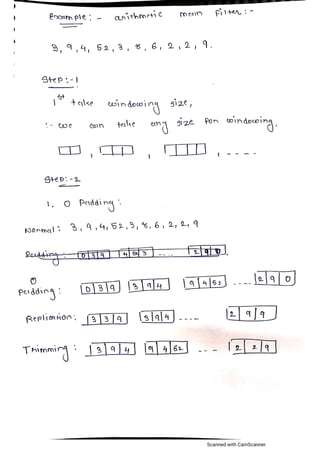 Example :- arithmetic mean filter :-
3, 9, 4, 52, 3, 8, 6, 2, 2, 9.
Step :- 1
1st take windowing size,
:- we can take any size for windowing.
, , , ----
Step :- 2
1. 0 Padding :
Normal : 3, 9, 4, 52, 3, 8, 6, 2, 2, 9
Padding : 0 3 9 4 52 3 .... 2 9 0
0 Padding : 0 3 9 3 9 4 9 4 52 .... 2 9 0
Replication : 3 3 9 3 9 4 .... 2 9 9
Trimming : 3 9 4 9 4 52 .. - 2 2 9
Scanned with CamScanner